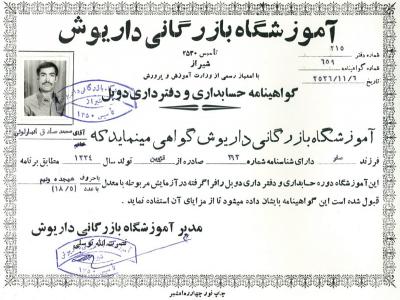 آموزشگاه بازرگانی داریوش
تأسیس ۲۵۳۰
شیراز
با امتیاز رسمی از وزارت آموزش و پرورش
شماره دفتر ۲۱۵
شماره گواهینامه ۶۵۹
تاریخ ۲۵۳۶/۱۱/۶
گواهینامه حسابداری و دفترداری دوبل
آموزشگاه بازرگانی داریوش گواهی مینماید که آقای محمد صادق
فرزند صفر دارای شناسنامه شماره ۲۶۳ صادره از قزوین تولد سال ۱۳۳۴ مطابق برنامه
این آموزشگاه دوره حسابداری و دفتر داری دوبل رافرا گرفته در آزمایش مربوطه با معدل باحروف هیجده ونیم
با عدد (۱۸/۵)
قبول شده است این گواهینامه بایشان داده میشود تا از مزایای آن استفاده نماید .
مدیر آموزشگاه بازرگانی داریوش